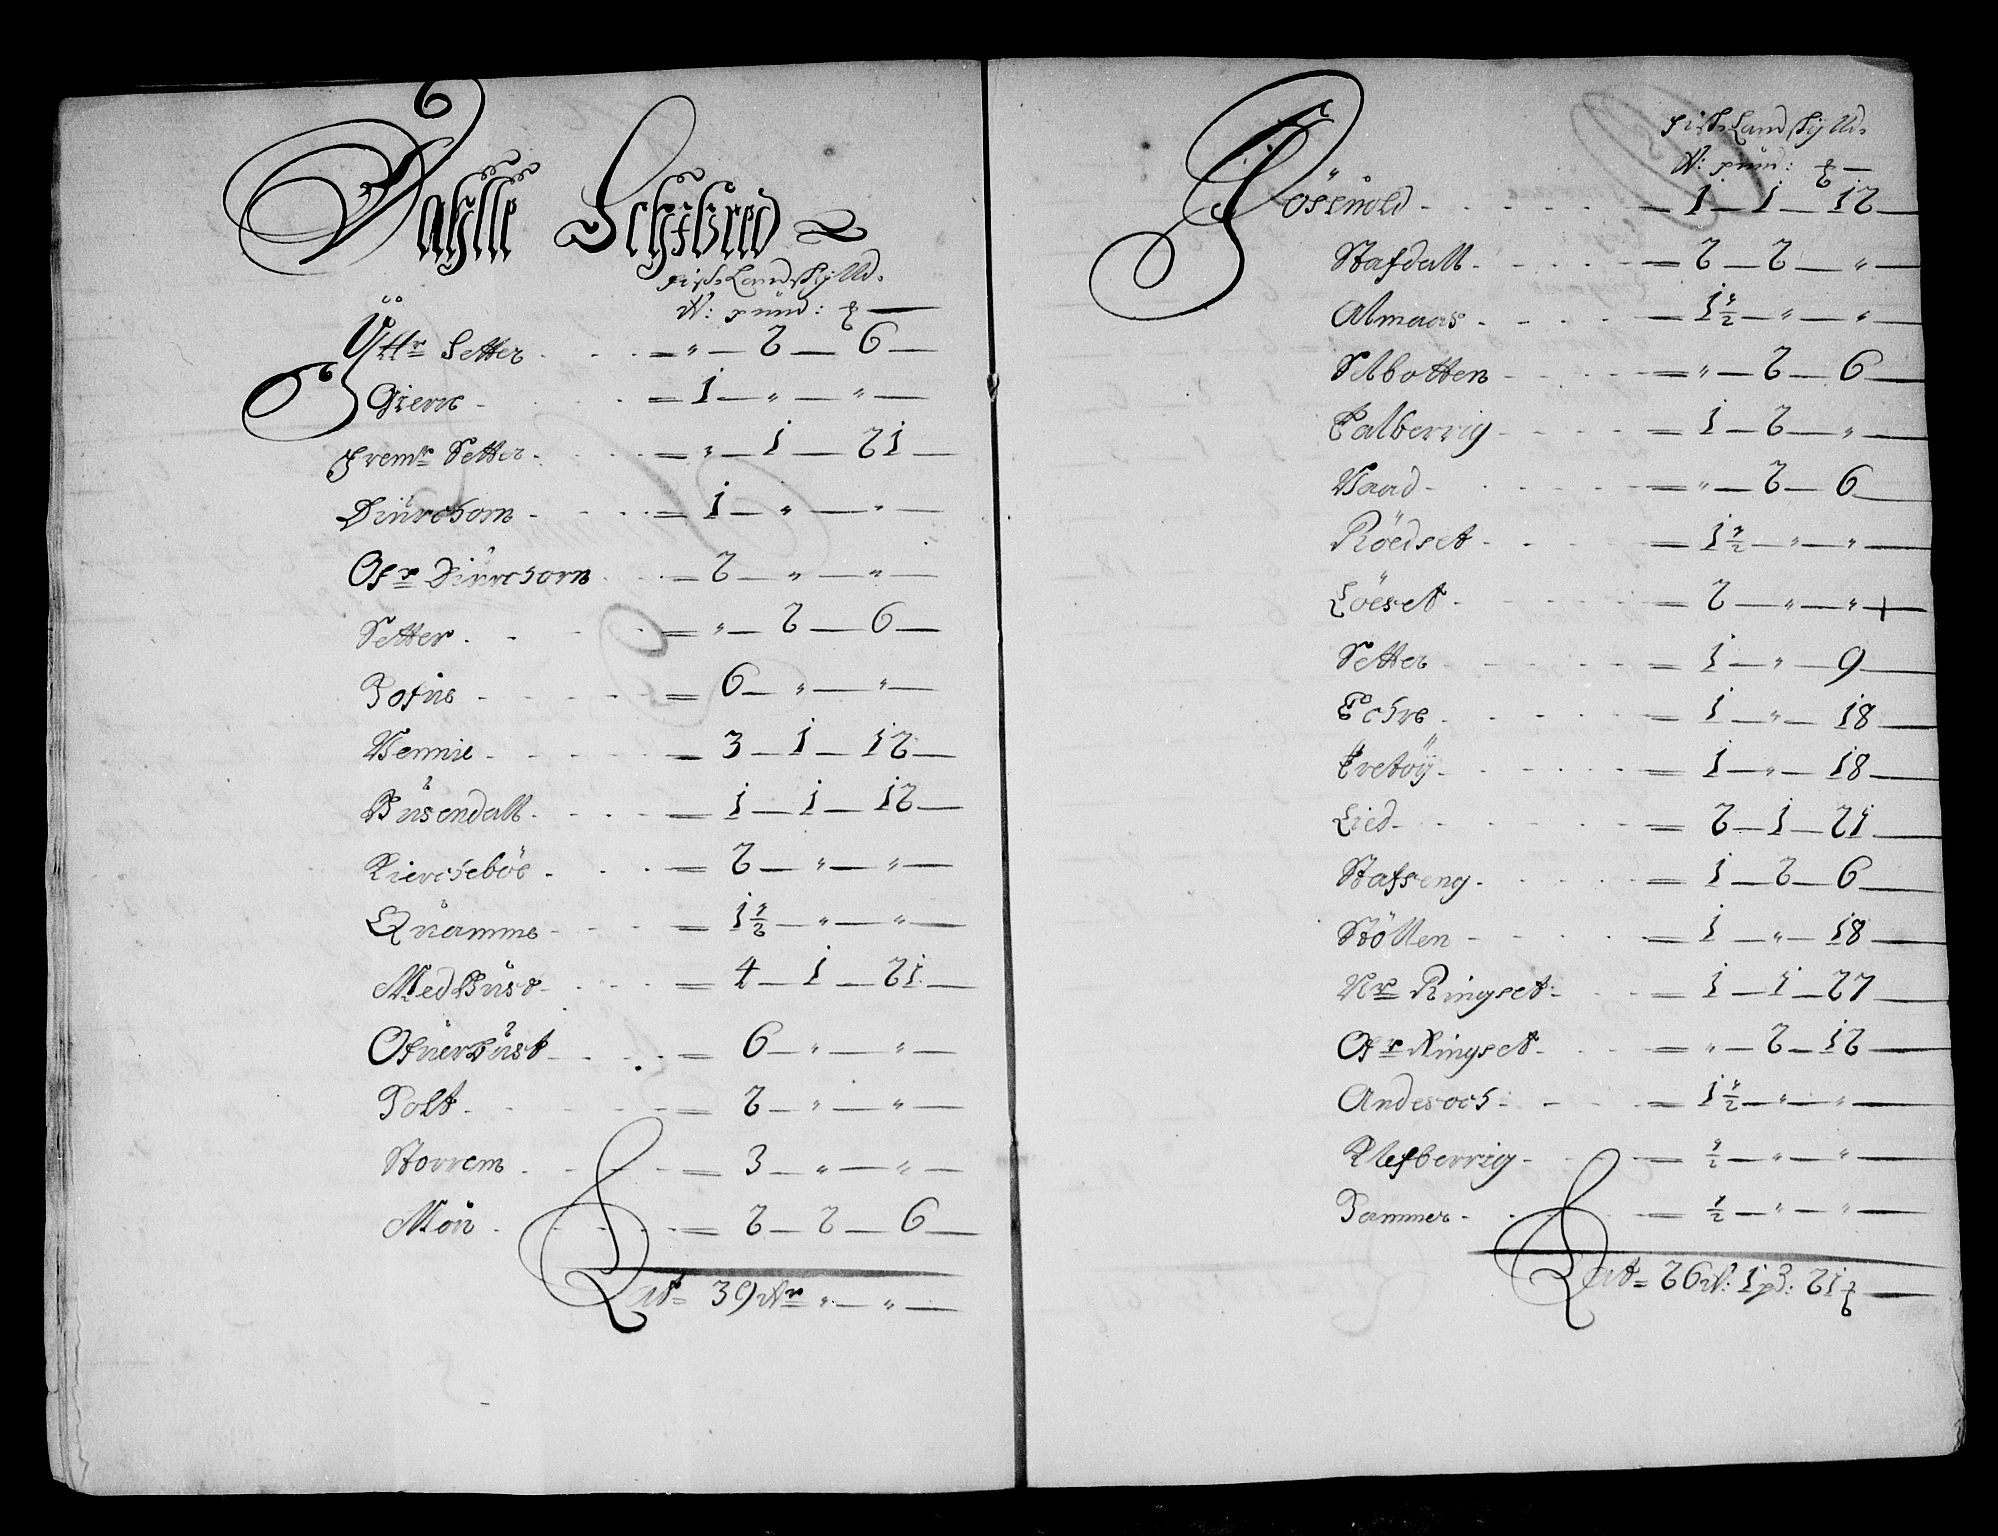 Dahlle Schibred
Fisk Landskyld.
W: pund: ℔
Ytt.r Setter = " — 2 — 6
Giere = 1 — " — "
Frem.r Setter = " — 1 — 21
Diurchorn = 1 — " — "
Of.r Diurchorn = 2 — " — "
Setter = " — 2 — 6
Pofue = 6 — " — "
Vennie = 3 — 1 — 12
Busendall = 1 — 1 — 12
Kiercheböe = 2 — " — "
Quamme = 1½ — " — "
Medbust = 4 — 1 — 21
Ofuerbust = 6 — " — "
Polt = 2 — " — "
Storrem = 3 — " — "
Mou = 2 — 2 — 6
Lat= 39 W.r " — "
Fisk Landskyld.
W: pund: ℔
Rösuold = 1 — 1 — 12
Stafdall = 2 — 2 — "
Almaas = 1½ — " — "
Selbotten = " — 2 — 6
Falberrig = 1 — 2 — "
Vaad = " — 2 — 6
Röedset = 1½ — " — "
Löeset = 2 — " — "
Setter = 1 — " — 9
Echre = 1 — " — 18
Eretöy = 1 — " — 18
Lied = 2 — 1 — 21
Stafseng = 1 — 2 — 6
Stöllen = 1 — " — 18
N.r Ringset = 1 — 1 — 27
Of.r Ringset = " — 2 — 12
Andesooh = 1½ — " — "
Klefberrig = ½ — " — "
Pammer = ½ — " — "
Lat= 26 W: 1 p3: 21 ℔